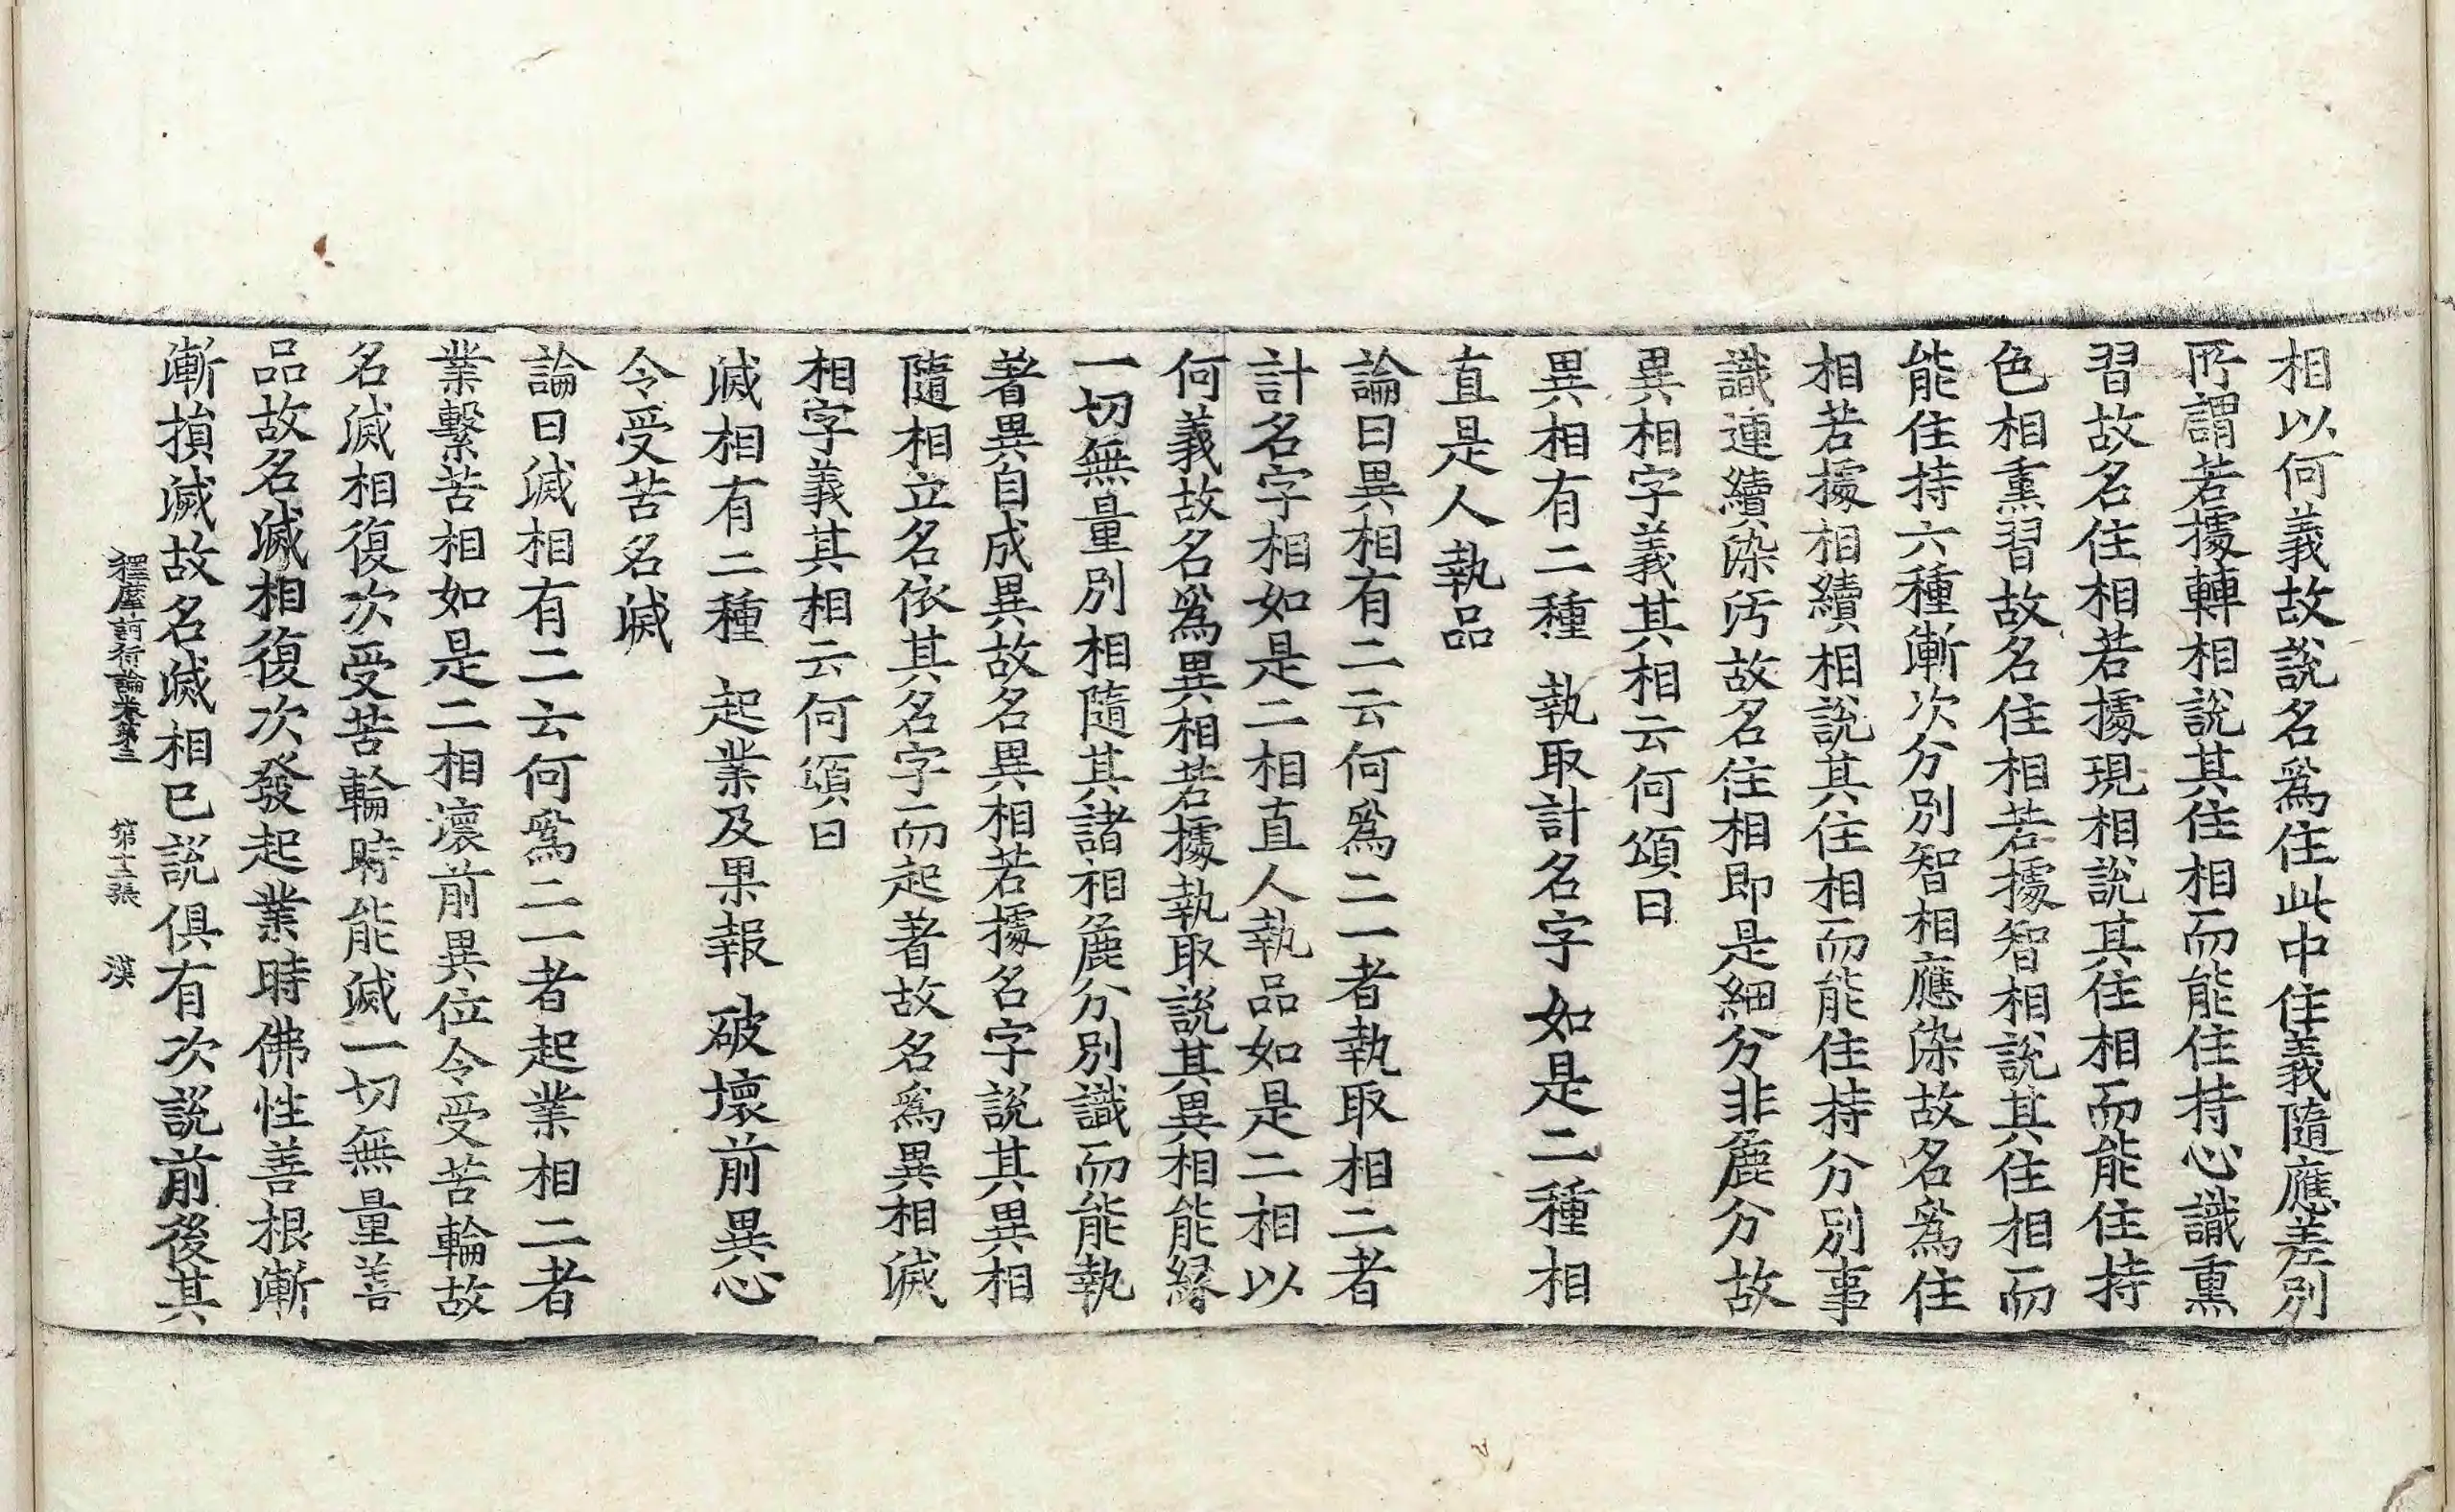 相以何義故說名爲住此中住義隨應差別
所謂若據轉相說其住相而能住持心識熏
習故名住相若據現相說其住相而能住持
色相熏習故名住相若據智相說其住相而
能住持六種漸次分別智相應染故名爲住
相若據相續相說其住相而能住持分別事
識連續染汚故名住相即是細分非麁分故
異相字義其相云何頌曰
異相有二種 執取計名字 如是二種相
直是人執品
論曰異相有二云何爲二一者執取相二者
計名字相如是二相直人執品如是二相以
何義故名爲異相若據執取說其異相能緣
一切無量別相隨其諸相麁分別識而能執
著異自成異故名異相若據名字說其異相
隨相立名依其名字而起著故名爲異相滅
相字義其相云何頌曰
滅相有二種 起業及果報 破壞前異心
令受苦名滅
論曰滅相有二云何爲二一者起業相二者
業繫苦相如是二相壞前異位令受苦輪故
名滅相復次受苦輪時能滅一切無量善
品故名滅相復次發起業時佛性善根漸
漸損滅故名滅相已說俱有次說前後其
釋摩訶衍論卷第三 第十二張 漠